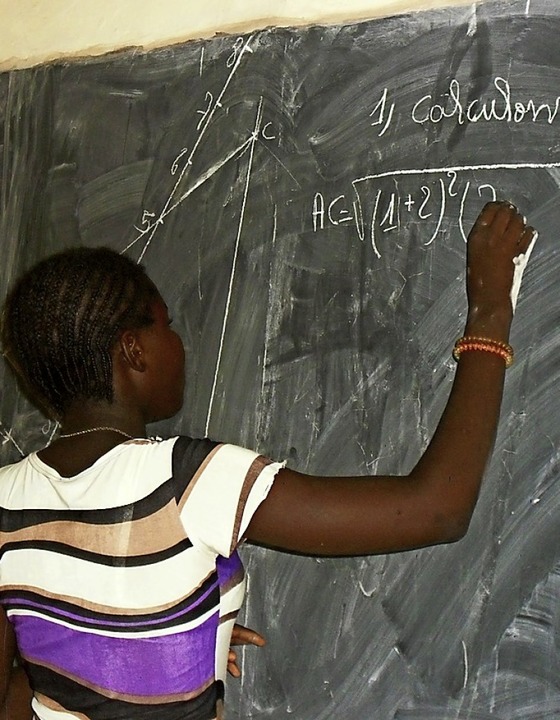 8
7
C
6
5
1, Calculon
AC=√(1+2)²(7